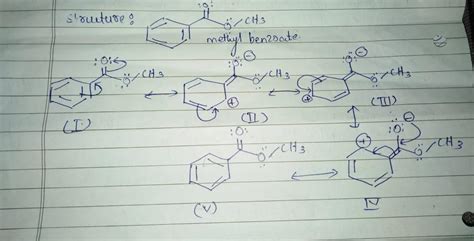 structure:
:O:
Ö: CH3
methyl benzoate
:O: :Ö:⊖ :Ö:⊖
Ö: CH3 Ö: CH3 Ö: CH3
⊕ ⊕
(I) (II) (III)
:O: :Ö:⊖
Ö: CH3 ⊕ Ö: CH3
(V) IV